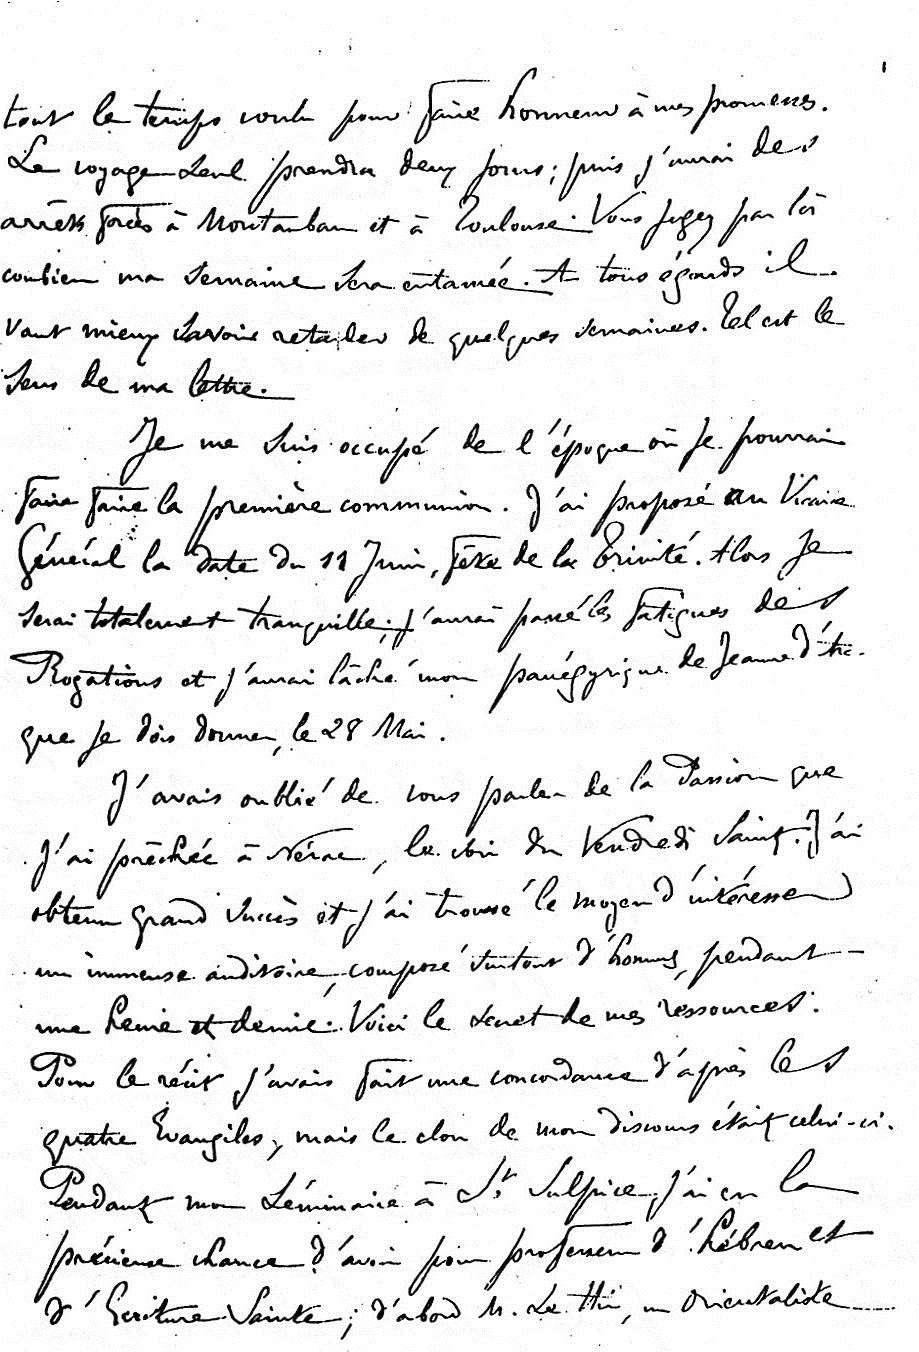 tout le temps voulu pour faire honneur à mes promesses.
Le voyage seul prendra deux jours ; puis j'aurai des
arrêts forcés à Montauban et à Toulouse. Vous jugez par là
combien ma semaine sera entamée. A tous égards il
vaut mieux savoir retarder de quelques semaines. Tel est le
sens de ma lettre.
Je me suis occupé de l'époque où je pourrai
faire faire la première communion. J'ai proposé au Vicaire
Général la date du 11 Juin, fête de la Trinité. Alors je
serai totalement tranquille ; j'aurai passé les fatigues des
Rogations et j'aurai lâché mon panégyrique de Jeanne d'Arc
que je dois donner, le 28 Mai.
J'avais oublié de vous parler de la Passion que
j'ai prêchée à Nérac, le soir du Vendredi Saint. J'ai
obtenu grand succès et j'ai trouvé le moyen d'intéresser
un immense auditoire, composé surtout d'hommes, pendant
une heure et demie. Voici le secret de mes ressources.
Pour le récit j'avais fait une concordance d'après les
quatre Evangiles, mais le clou de mon discours était celui-ci.
Pendant mon Séminaire à St Sulpice, j'ai eu la
précieuse chance d'avoir pour professeur d'hébreu et
d'Ecriture Sainte ; d'abord M. Le Hir, un Orientaliste